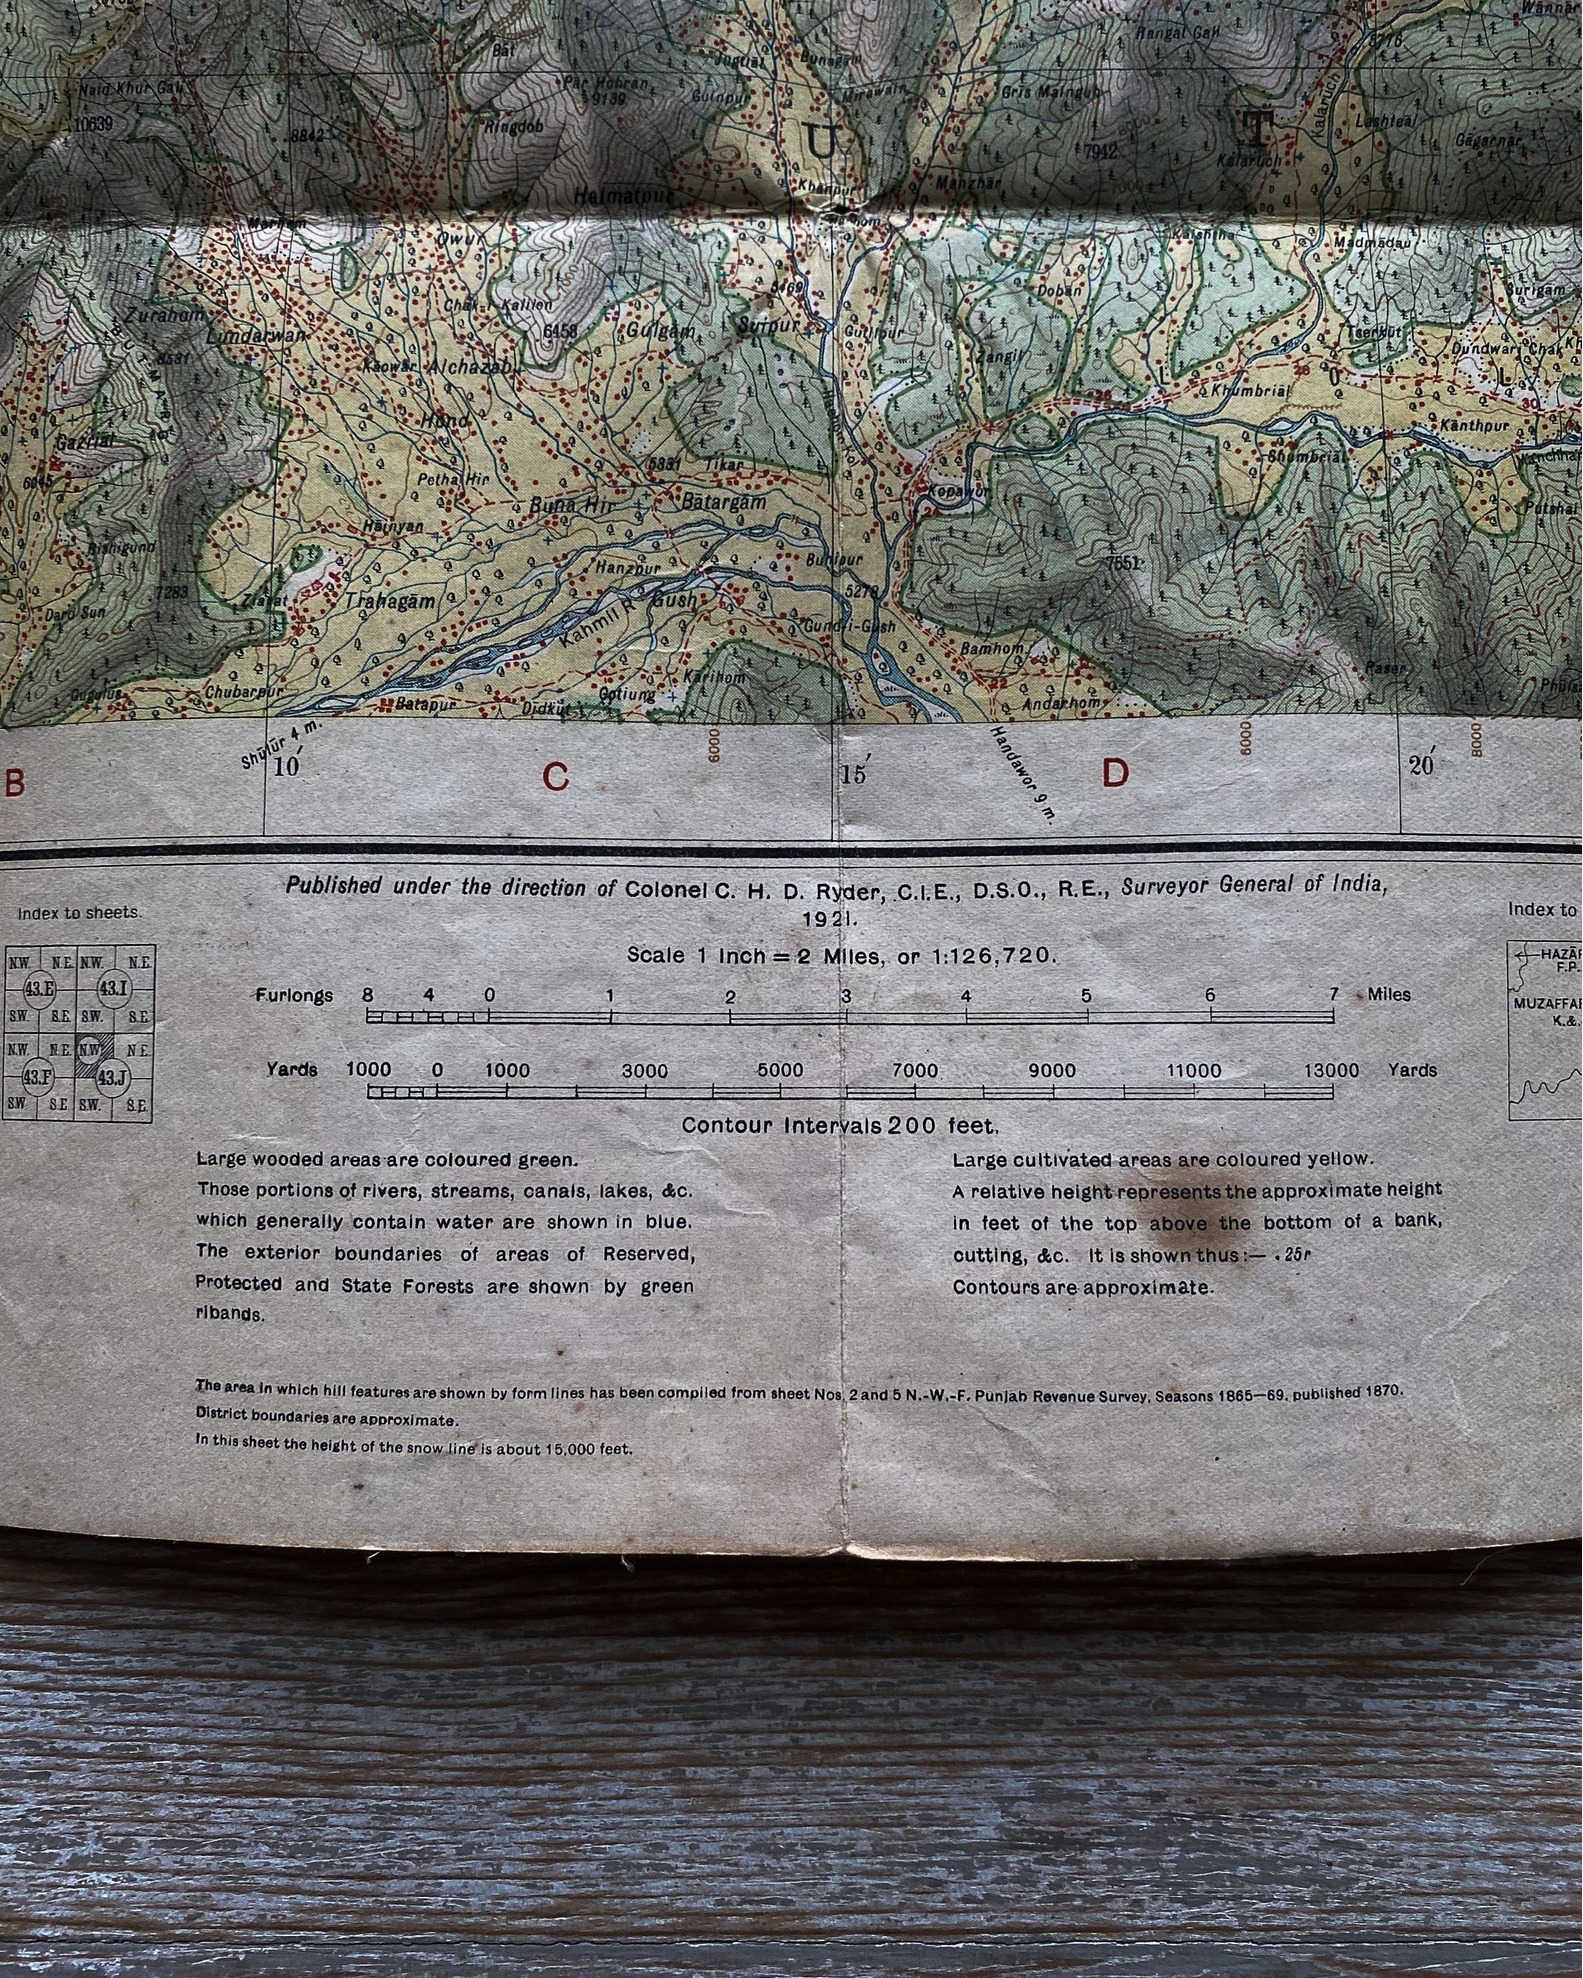 Bat
Naid Khur Gali
10639
8842
Ringdob
Par Hobran
9139
Jugtial
Bunagam
Gulnpur
Mirawain
U
Rangat Gali
Gris Maingub
7942
T
Kalaruch
Kalaruch
Lashteal
Gagarnar
Helmatpur
Khanpur
Manzhar
Marham
Owur
Kaishtha
Madmadau
Surigam
Zurahom
Lundarwan
8531
Chak-i-Kalilen
6458
Gulgam
Surpur
Gutlpur
Doban
Tserkut
Dundwari Chak
Kaowar
Alchazab
Zangli
L
O
L
Khumbrial
28
26
30
Hond
Gazrial
6045
Petha Hir
5331
Tikar
Kanthpur
Shumbrial
Buna Hir
Batargam
Kopawor
Putshai
Rishigund
Hainyan
7283
Ziarat
Trahagam
Hanzpur
Kahmil R
Gush
Buhipur
5278
7551
Dard Sun
Gund-i-Gush
Bamhom
22
Raser
Gugulus
Chubarpur
Batapur
Didkut
Gotiung
Karihom
Andarhom
Shulur 4 m.
6000
Handawor 9 m.
6000
8000
B
10′
C
15′
D
20′
Published under the direction of Colonel C. H. D. Ryder, C.I.E., D.S.O., R.E., Surveyor General of India,
1921.
Index to sheets.
Index to
Scale 1 Inch = 2 Miles, or 1:126,720.
Furlongs 8 4 0 1 2 3 4 5 6 7 Miles
Yards 1000 0 1000 3000 5000 7000 9000 11000 13000 Yards
N.W. N.E. N.W. N.E.
43.E 43.I
S.W. S.E. S.W. S.E.
N.W. N.E. N.W. N.E.
43.F 43.J
S.W. S.E. S.W. S.E.
HAZĀR
F.P.
MUZAFFAR
K.&.
Contour Intervals 200 feet.
Large wooded areas are coloured green.
Those portions of rivers, streams, canals, lakes, &c.
which generally contain water are shown in blue.
The exterior boundaries of areas of Reserved,
Protected and State Forests are shown by green
ribands.
Large cultivated areas are coloured yellow.
A relative height represents the approximate height
in feet of the top above the bottom of a bank,
cutting, &c. It is shown thus:— .25r
Contours are approximate.
The area in which hill features are shown by form lines has been compiled from sheet Nos. 2 and 5 N.-W.-F. Punjab Revenue Survey, Seasons 1865—69, published 1870.
District boundaries are approximate.
In this sheet the height of the snow line is about 15,000 feet.